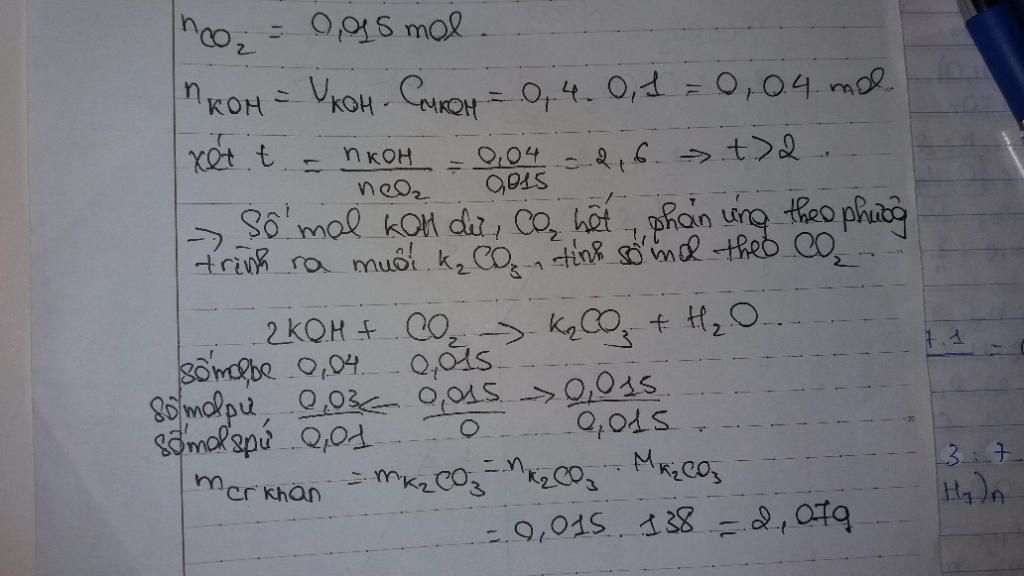 nCO₂ = 0,015 mol.
nKOH = VKOH . CMKOH = 0,4 . 0,1 = 0,04 mol
xét t = nKOH / nCO₂ = 0,04 / 0,015 = 2,6 → t > 2 .
→ Số mol KOH dư, CO₂ hết, phản ứng theo phương
trình ra muối K₂CO₃, tính số mol theo CO₂.
2KOH + CO₂ → K₂CO₃ + H₂O
số mol bđ 0,04 0,015
số mol pư 0,03 ← 0,015 → 0,015
số mol spứ 0,01 0 0,015 .
mcr khan = mK₂CO₃ = nK₂CO₃ . MK₂CO₃
= 0,015 . 138 = 2,07g
7.1 =
3 : 7
)n